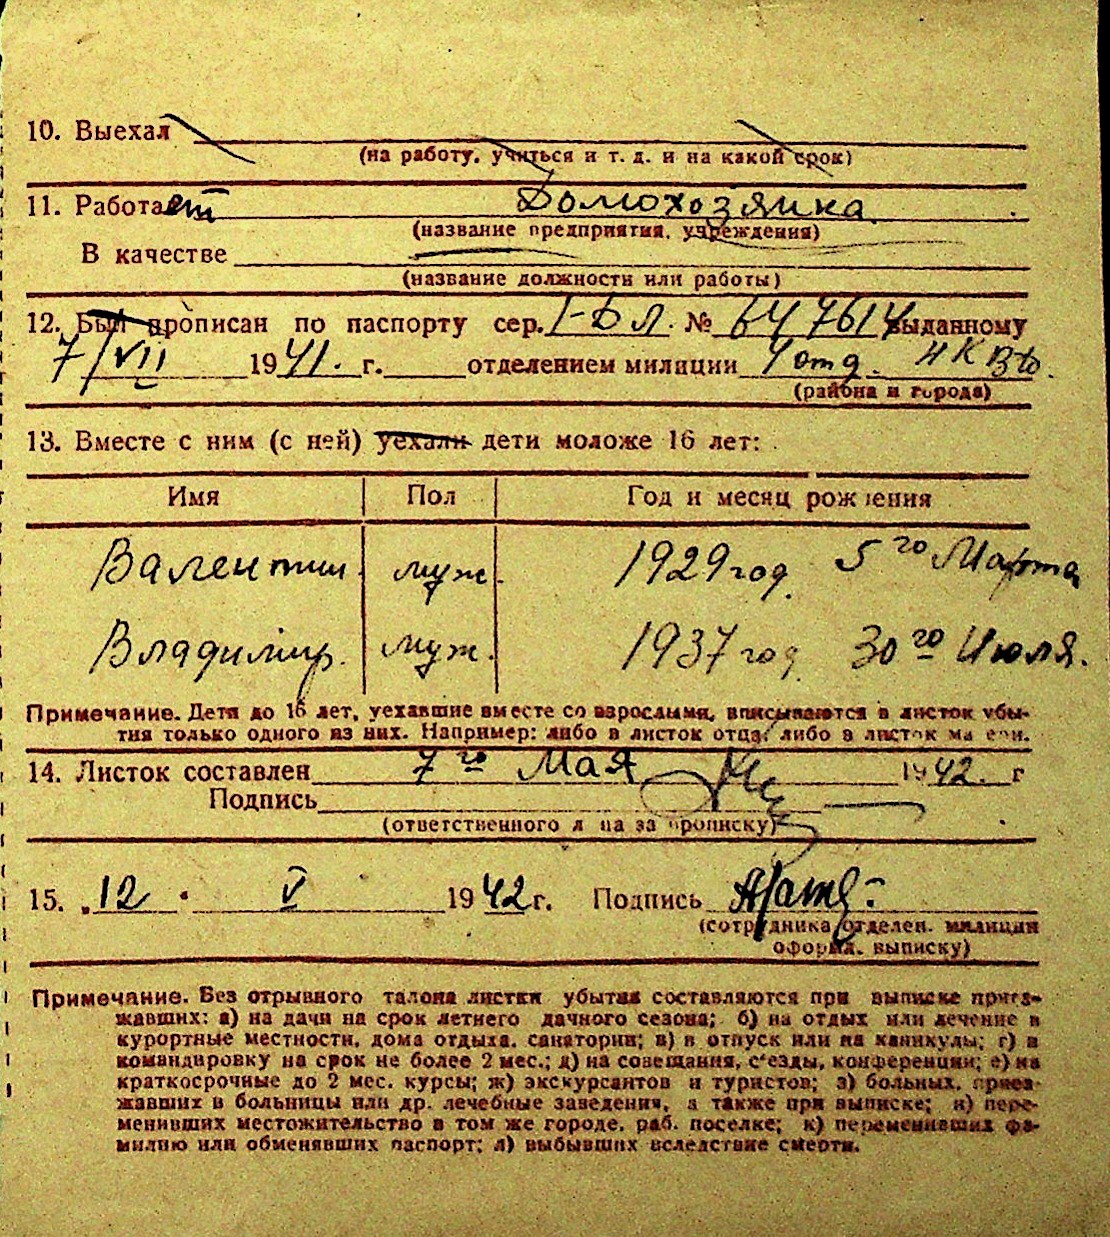 10. Выехал
(на работу, учиться и т. д. и на какой срок)
11. Работает Домохозяйка
(название предприятия, учреждения)
В качестве
(название должности или работы)
12. Был прописан по паспорту сер. № 647614 выданному
7/VII 1941. г. отделением милиции 4 отд. НКВД.
(района и города)
13. Вместе с ним (с ней) уехали дети моложе 16 лет:
Имя Пол Год и месяц рождения
Валентин муж. 1929 год. 5го Марта
Владимир. муж. 1937 год 30го Июля.
Примечание. Дети до 16 лет, уехавшие вместе со взрослыми, вписываются в листок убы-
тия только одного из них. Например: либо в листок отца, либо в листок матери.
14. Листок составлен 7го Мая 1942. г
Подпись
(ответственного лица за прописку)
15. „12 “ V 1942 г. Подпись
(сотрудника отделен. милиции
оформ. выписку)
Примечание. Без отрывного талона листки убытия составляются при выписке приез-
жавших: а) на дачи на срок летнего дачного сезона; б) на отдых или лечение в
курортные местности, дома отдыха, санатории; в) в отпуск или на каникулы; г) в
командировку на срок не более 2 мес.; д) на совещания, с'езды, конференции; е) на
краткосрочные до 2 мес. курсы; ж) экскурсантов и туристов; з) больных, приез-
жавших в больницы или др. лечебные заведения, а также при выписке; и) пере-
менивших местожительство в том же городе, раб. поселке; к) переменивших фа-
милию или обменявших паспорт; л) выбывших вследствие смерти.